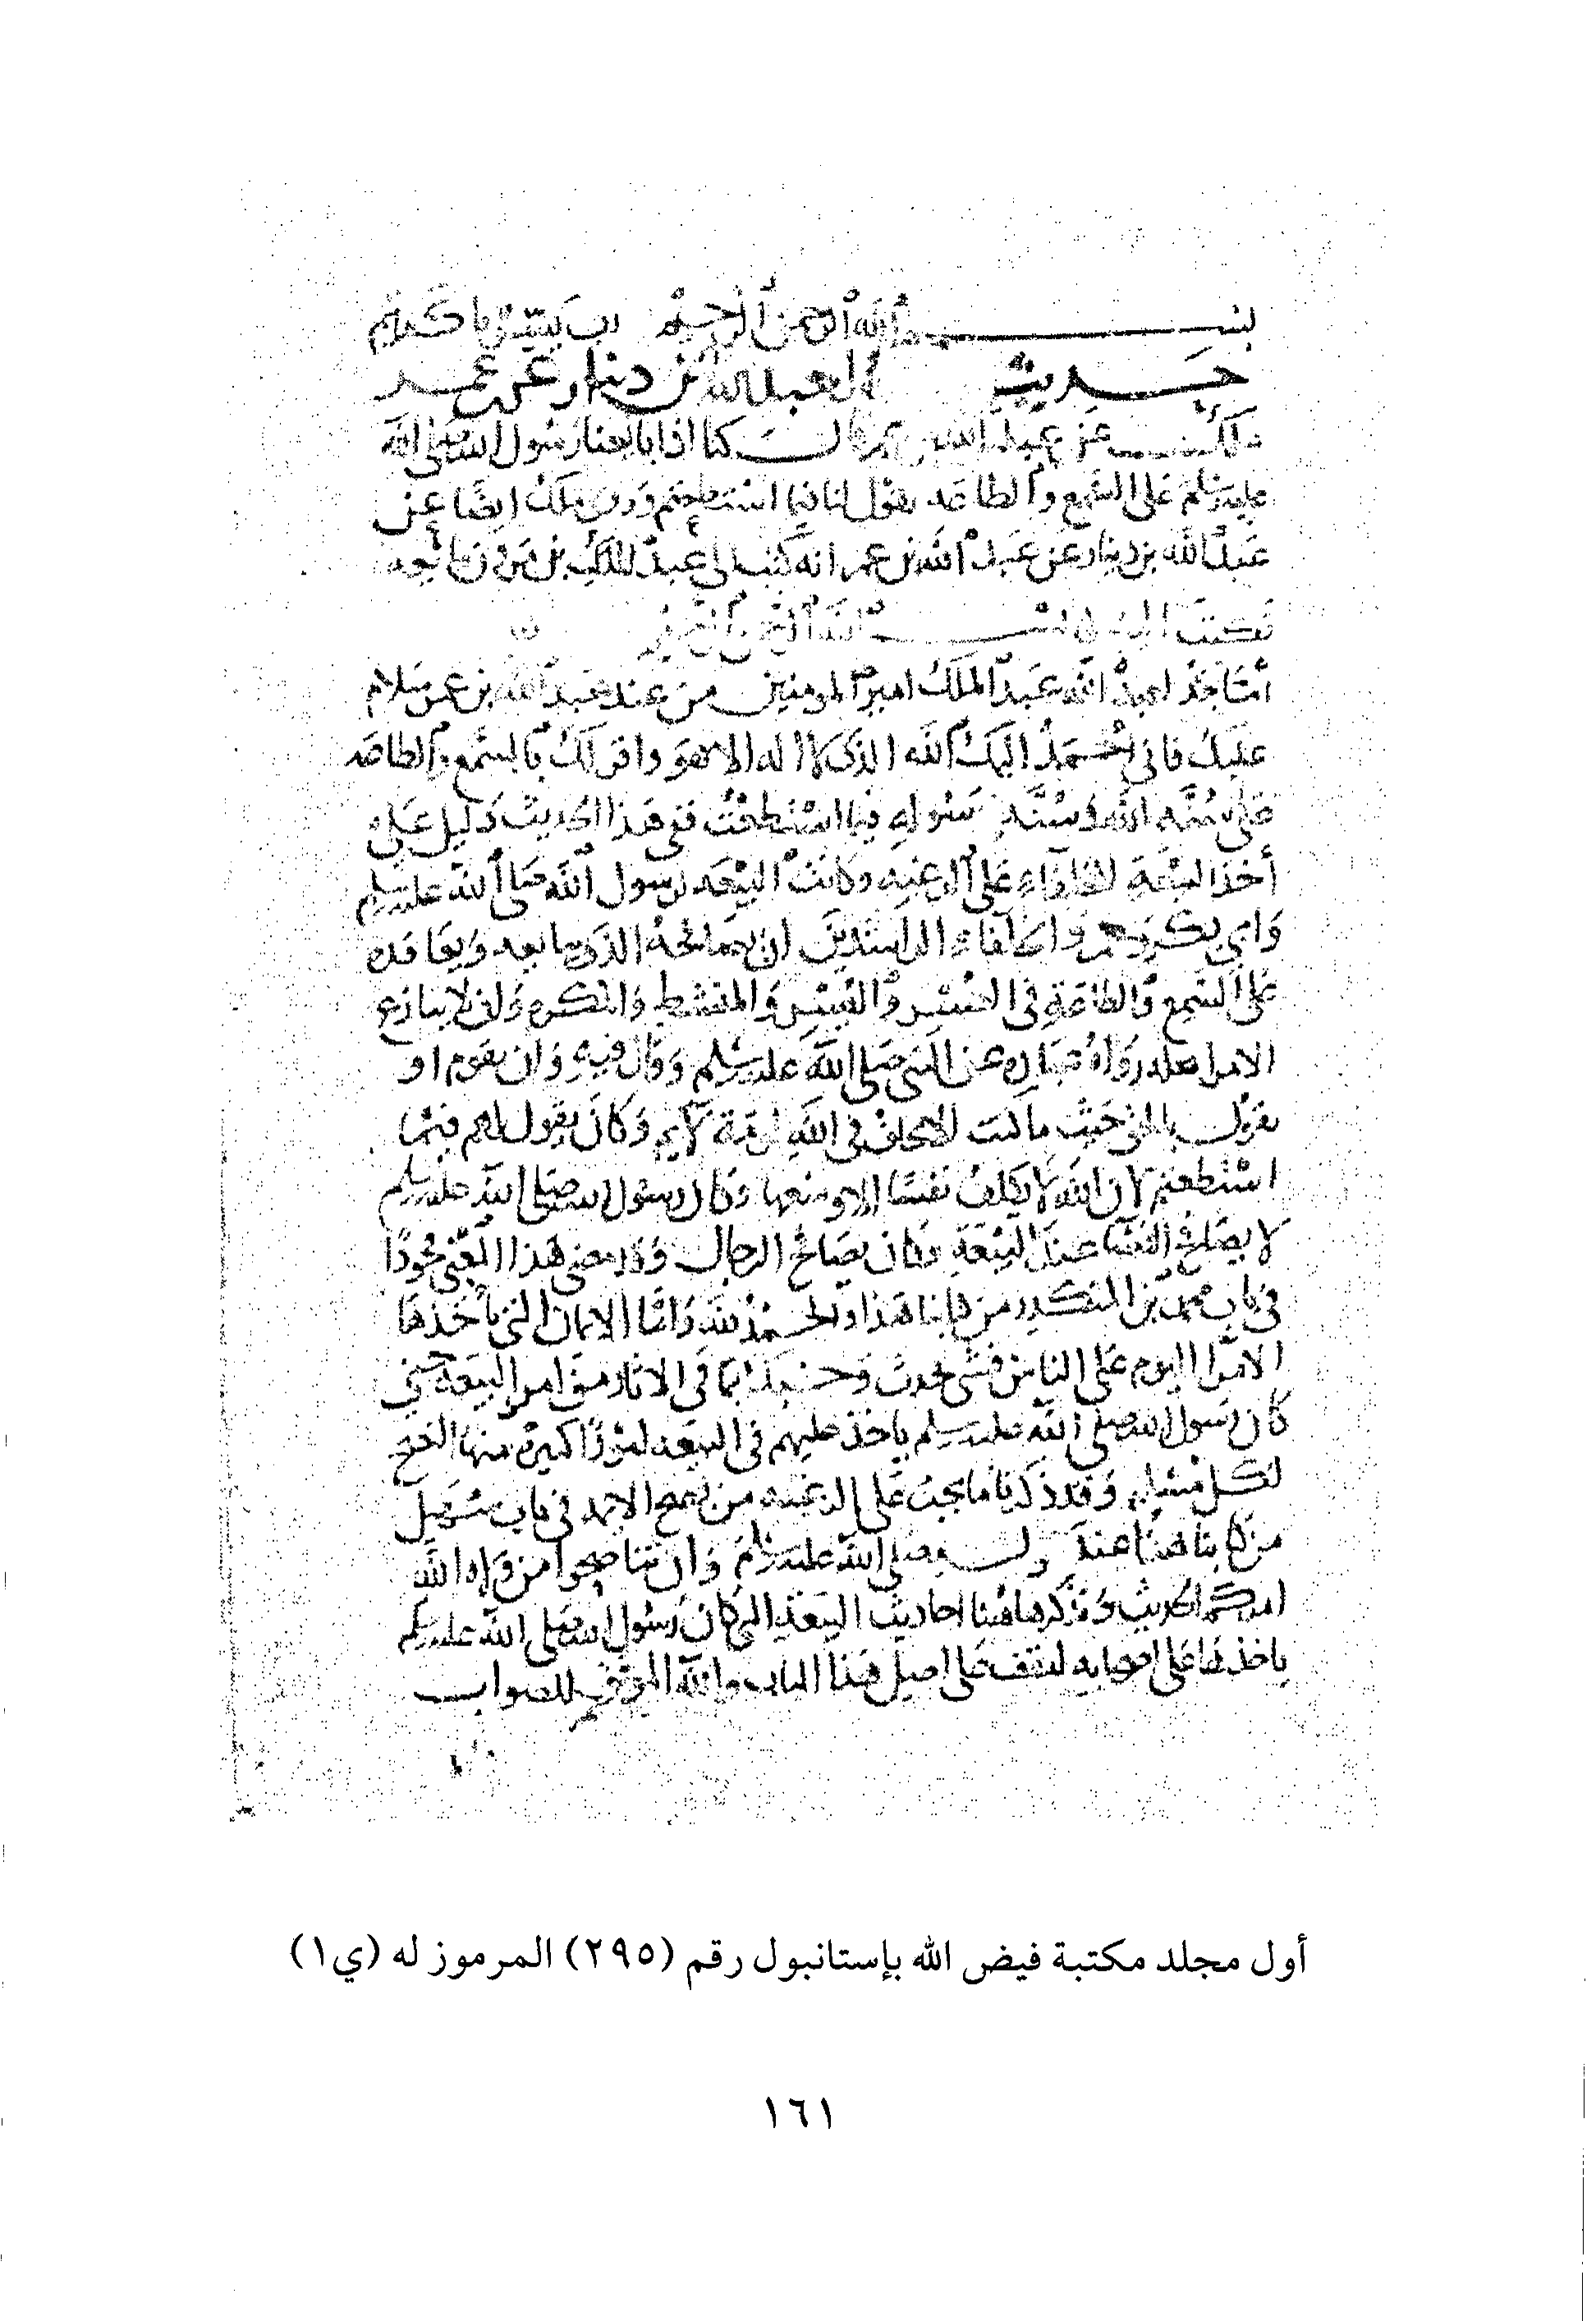 بسم الله الرحمن الرحيم رب يسر يا كريم
حديث لعبد الله بن دينار عن عمر
ملك عن عبد الله بن قال كنا اذا بايعنا رسول الله صلى الله
عليه وسلم على السمع والطاعه يقول لنا فيما استطعتم وروى ملك ايضا عن
عبد الله بن دينار عن عبد الله بن عمر انه كتب الى عبد الملك بن مروان يبايعه
فكتب اليه بسم الله الرحمن الرحيم
اما بعد لعبد الله عبد الملك امير المومنين من عند عبد الله بن عمر سلام
عليك فاني احمد اليك الله الذي لا اله الا هو واقر لك بالسمع والطاعه
على سنه الله وسنة رسوله فيما استطعت ففي هذا الحديث دليل على
أخذ البيعة للخلفاء على الرعيه وكانت البيعه لرسول الله صلى الله عليه وسلم
وابي بكر وعمر والخلفاء الراشدين ان يصافحه الذي يبايعه ويعاقده
على السمع والطاعة في العسر واليسر والمنشط والمكره وان لا ينازع
الامر اهله رواه عباده عن النبي صلى الله عليه وسلم وقال فيه وان يقوم او
يقول بالحق حيث ما كنت لا يخاف في الله لومة لايم وكان يقول لهم فيما
استطعتم لان الله لا يكلف نفسا الا وسعها وكان رسول الله صلى الله عليه وسلم
لا يصافح النساء عند البيعة وكان يصافح الرجال وقد مضى هذا المعنى مجودا
في باب محمد بن المنكدر من كتابنا هذا والحمد لله واما الايمان التي يأخذها
الامرا اليوم على الناس فشى محدث وحسبك بما في الاثار من امر البيعة حتى
كان رسول الله صلى الله عليه وسلم ياخذ عليهم في البيعه امورا كبيرة منها النصح
لكل مسلم وقد ذكرنا ما يجب على الرعيه من نصح الايمه في باب سهيل
من كتابنا هذا عند قوله صلى الله عليه وسلم وان تناصحوا من ولاه الله
امركم الحديث ونذكر هاهنا احاديث البيعة التي كان رسول الله صلى الله عليه وسلم
ياخذها على اصحابه لنقف على اصل هذا الباب والله الموفق للصواب
أول مجلد مكتبة فيض الله بإستانبول رقم (٢٩٥) المرموز له (ي١)
١٦١